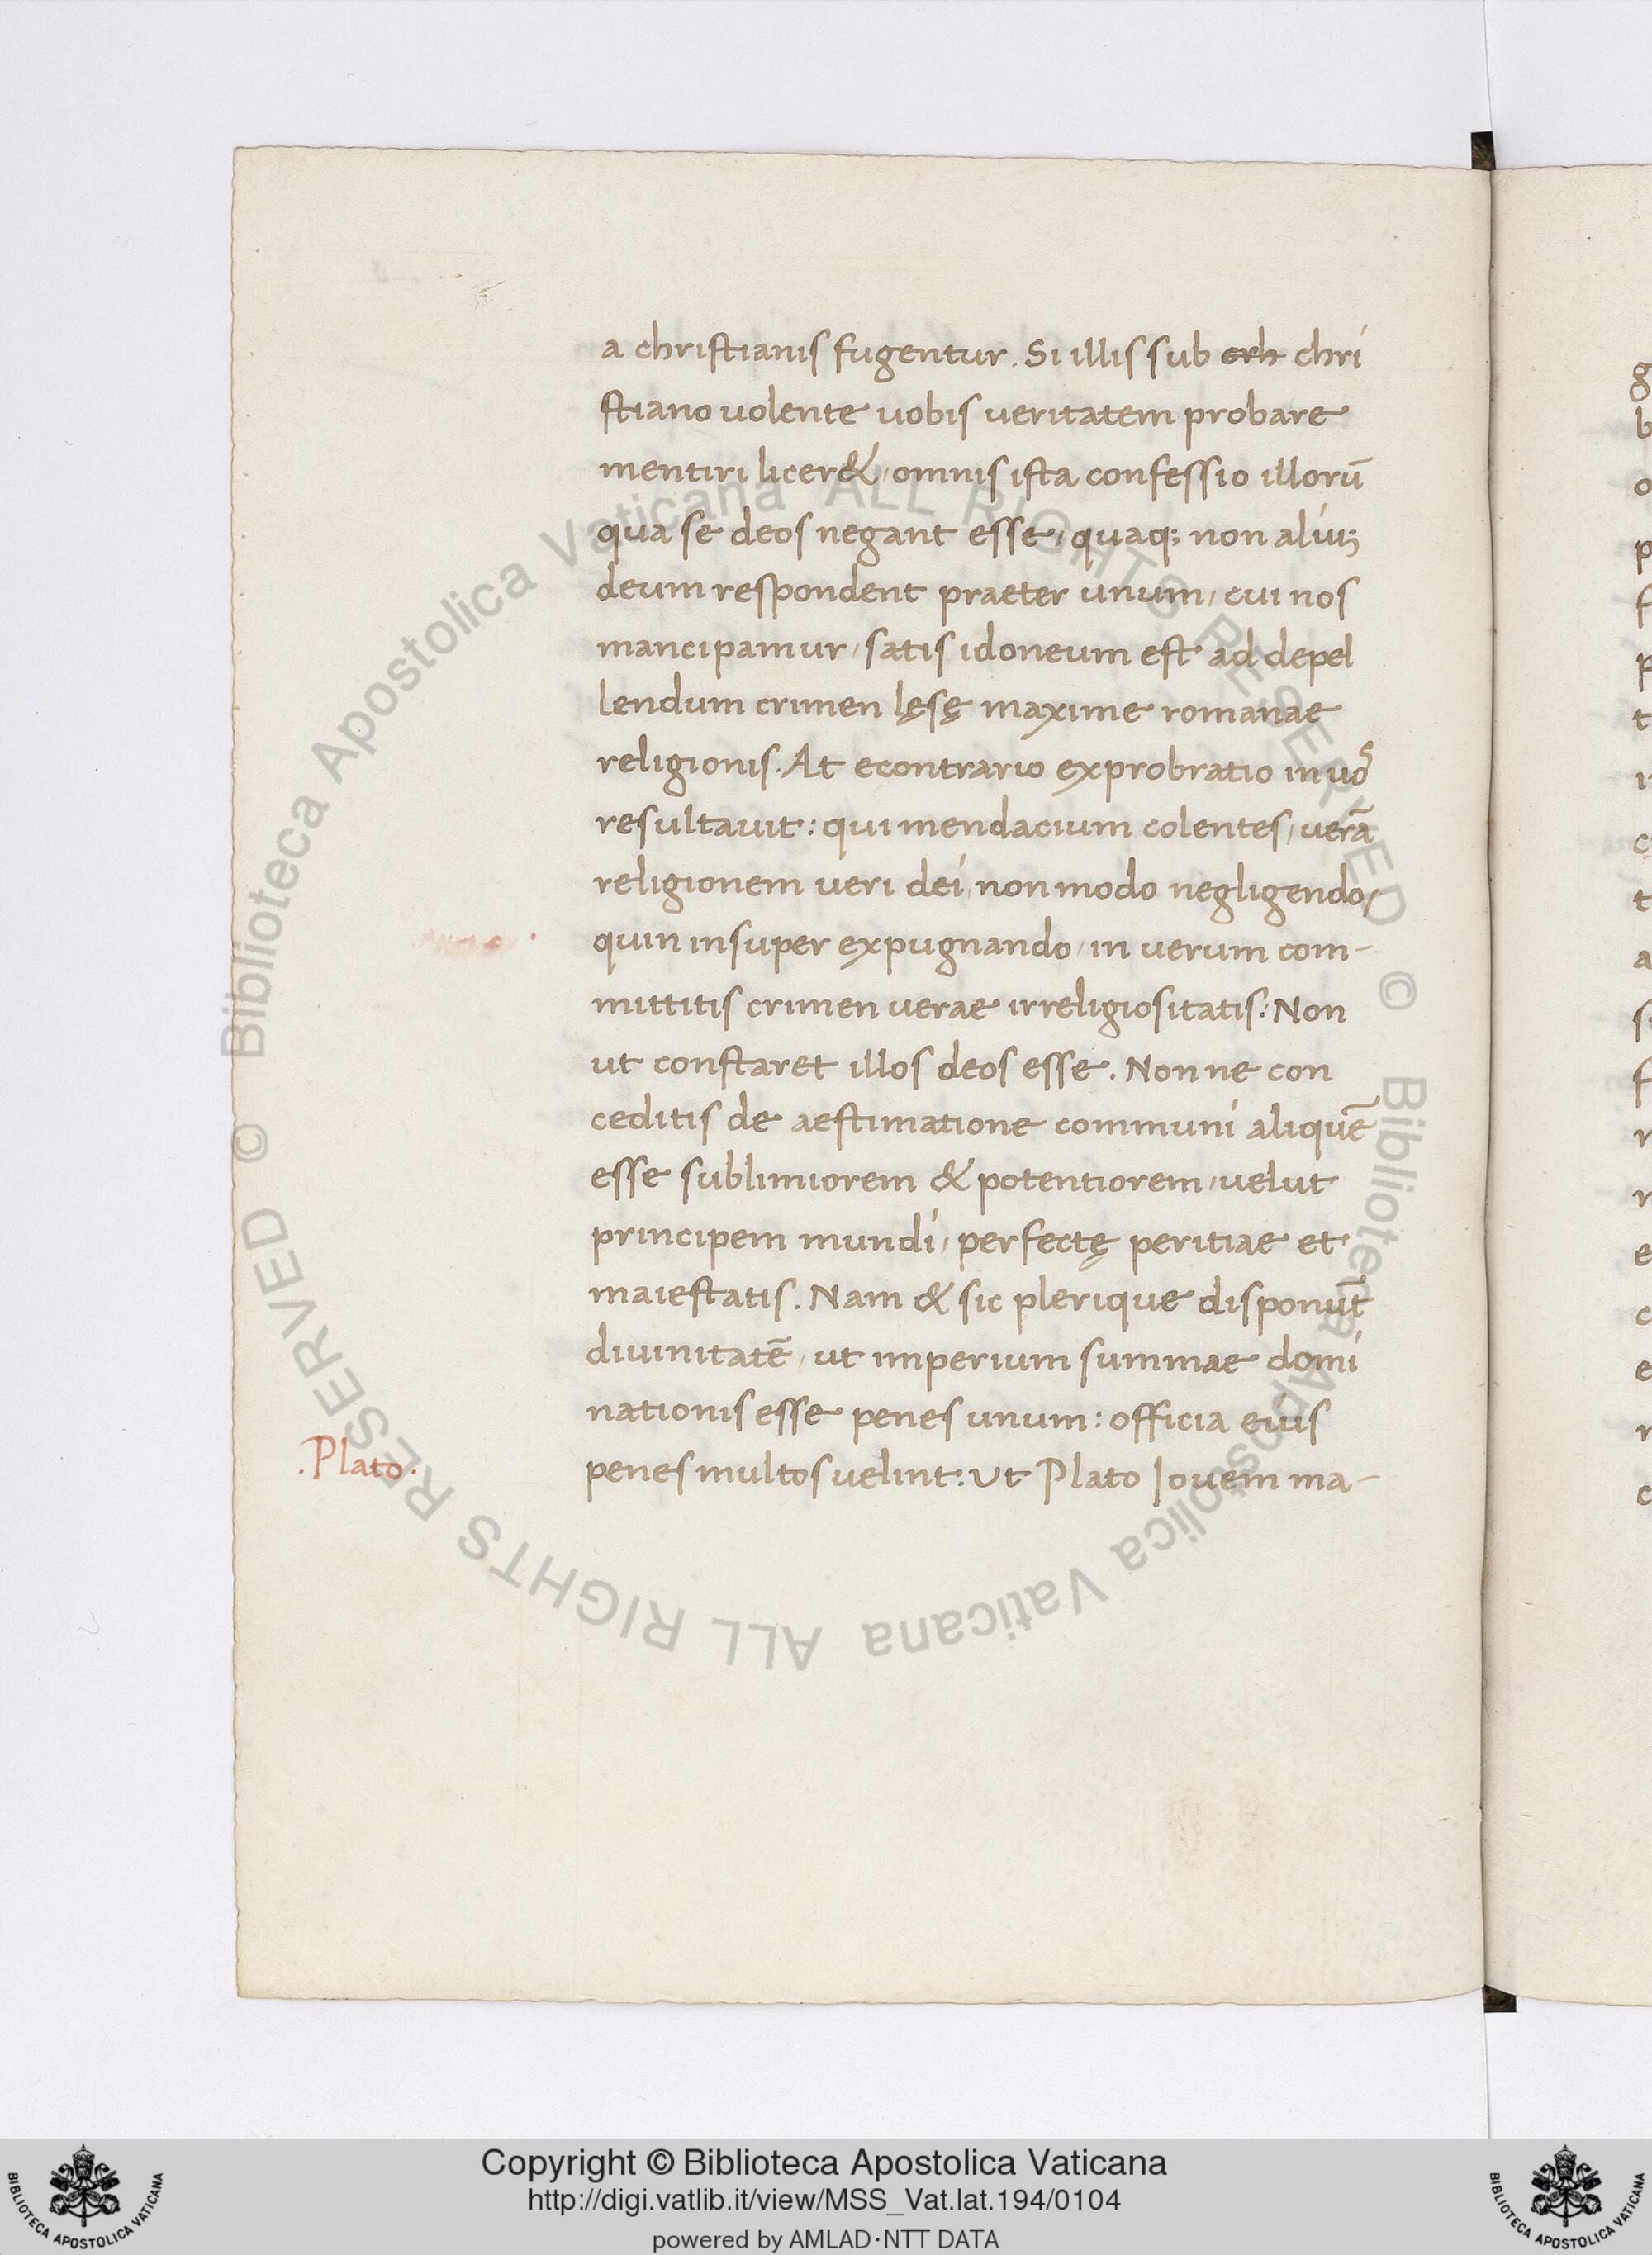 a christianis fugentur. Si illis sub chri
stiano uolente uobis ueritatem probare
mentiri licer&, omnis ista confessio illorū
qua se deos negant esse, quaq; non aliu;
deum respondent praeter unum, cui nos
mancipamur, satis idoneum est ad depel
lendum crimen lęsę maxime romanae
religionis. At econtrario exprobratio in uoˢ
resultauit: qui mendacium colentes, uerā
religionem ueri dei, non modo negligendo,
quin insuper expugnando, in uerum com-
mittitis crimen uerae irreligiositatis: Non
ut constaret illos deos esse. Non ne con
ceditis de aestimatione communi aliquē
esse sublimiorem & potentiorem, uelut
principem mundi, perfectę peritiae et
maiestatis. Nam & sic plerique disponūt
diuinitatē, ut imperium summae domi
nationis esse penes unum: officia eius
.Plato.
penes multos uelint: Ut Plato Iouem ma-
© Biblioteca Apostolica Vaticana ALL RIGHTS RESERVED
© Biblioteca Apostolica Vaticana ALL RIGHTS RESERVED
Copyright © Biblioteca Apostolica Vaticana
http://digi.vatlib.it/view/MSS_Vat.lat.194/0104
powered by AMLAD·NTT DATA
BIBLIOTECA APOSTOLICA VATICANA
BIBLIOTECA APOSTOLICA VATICANA